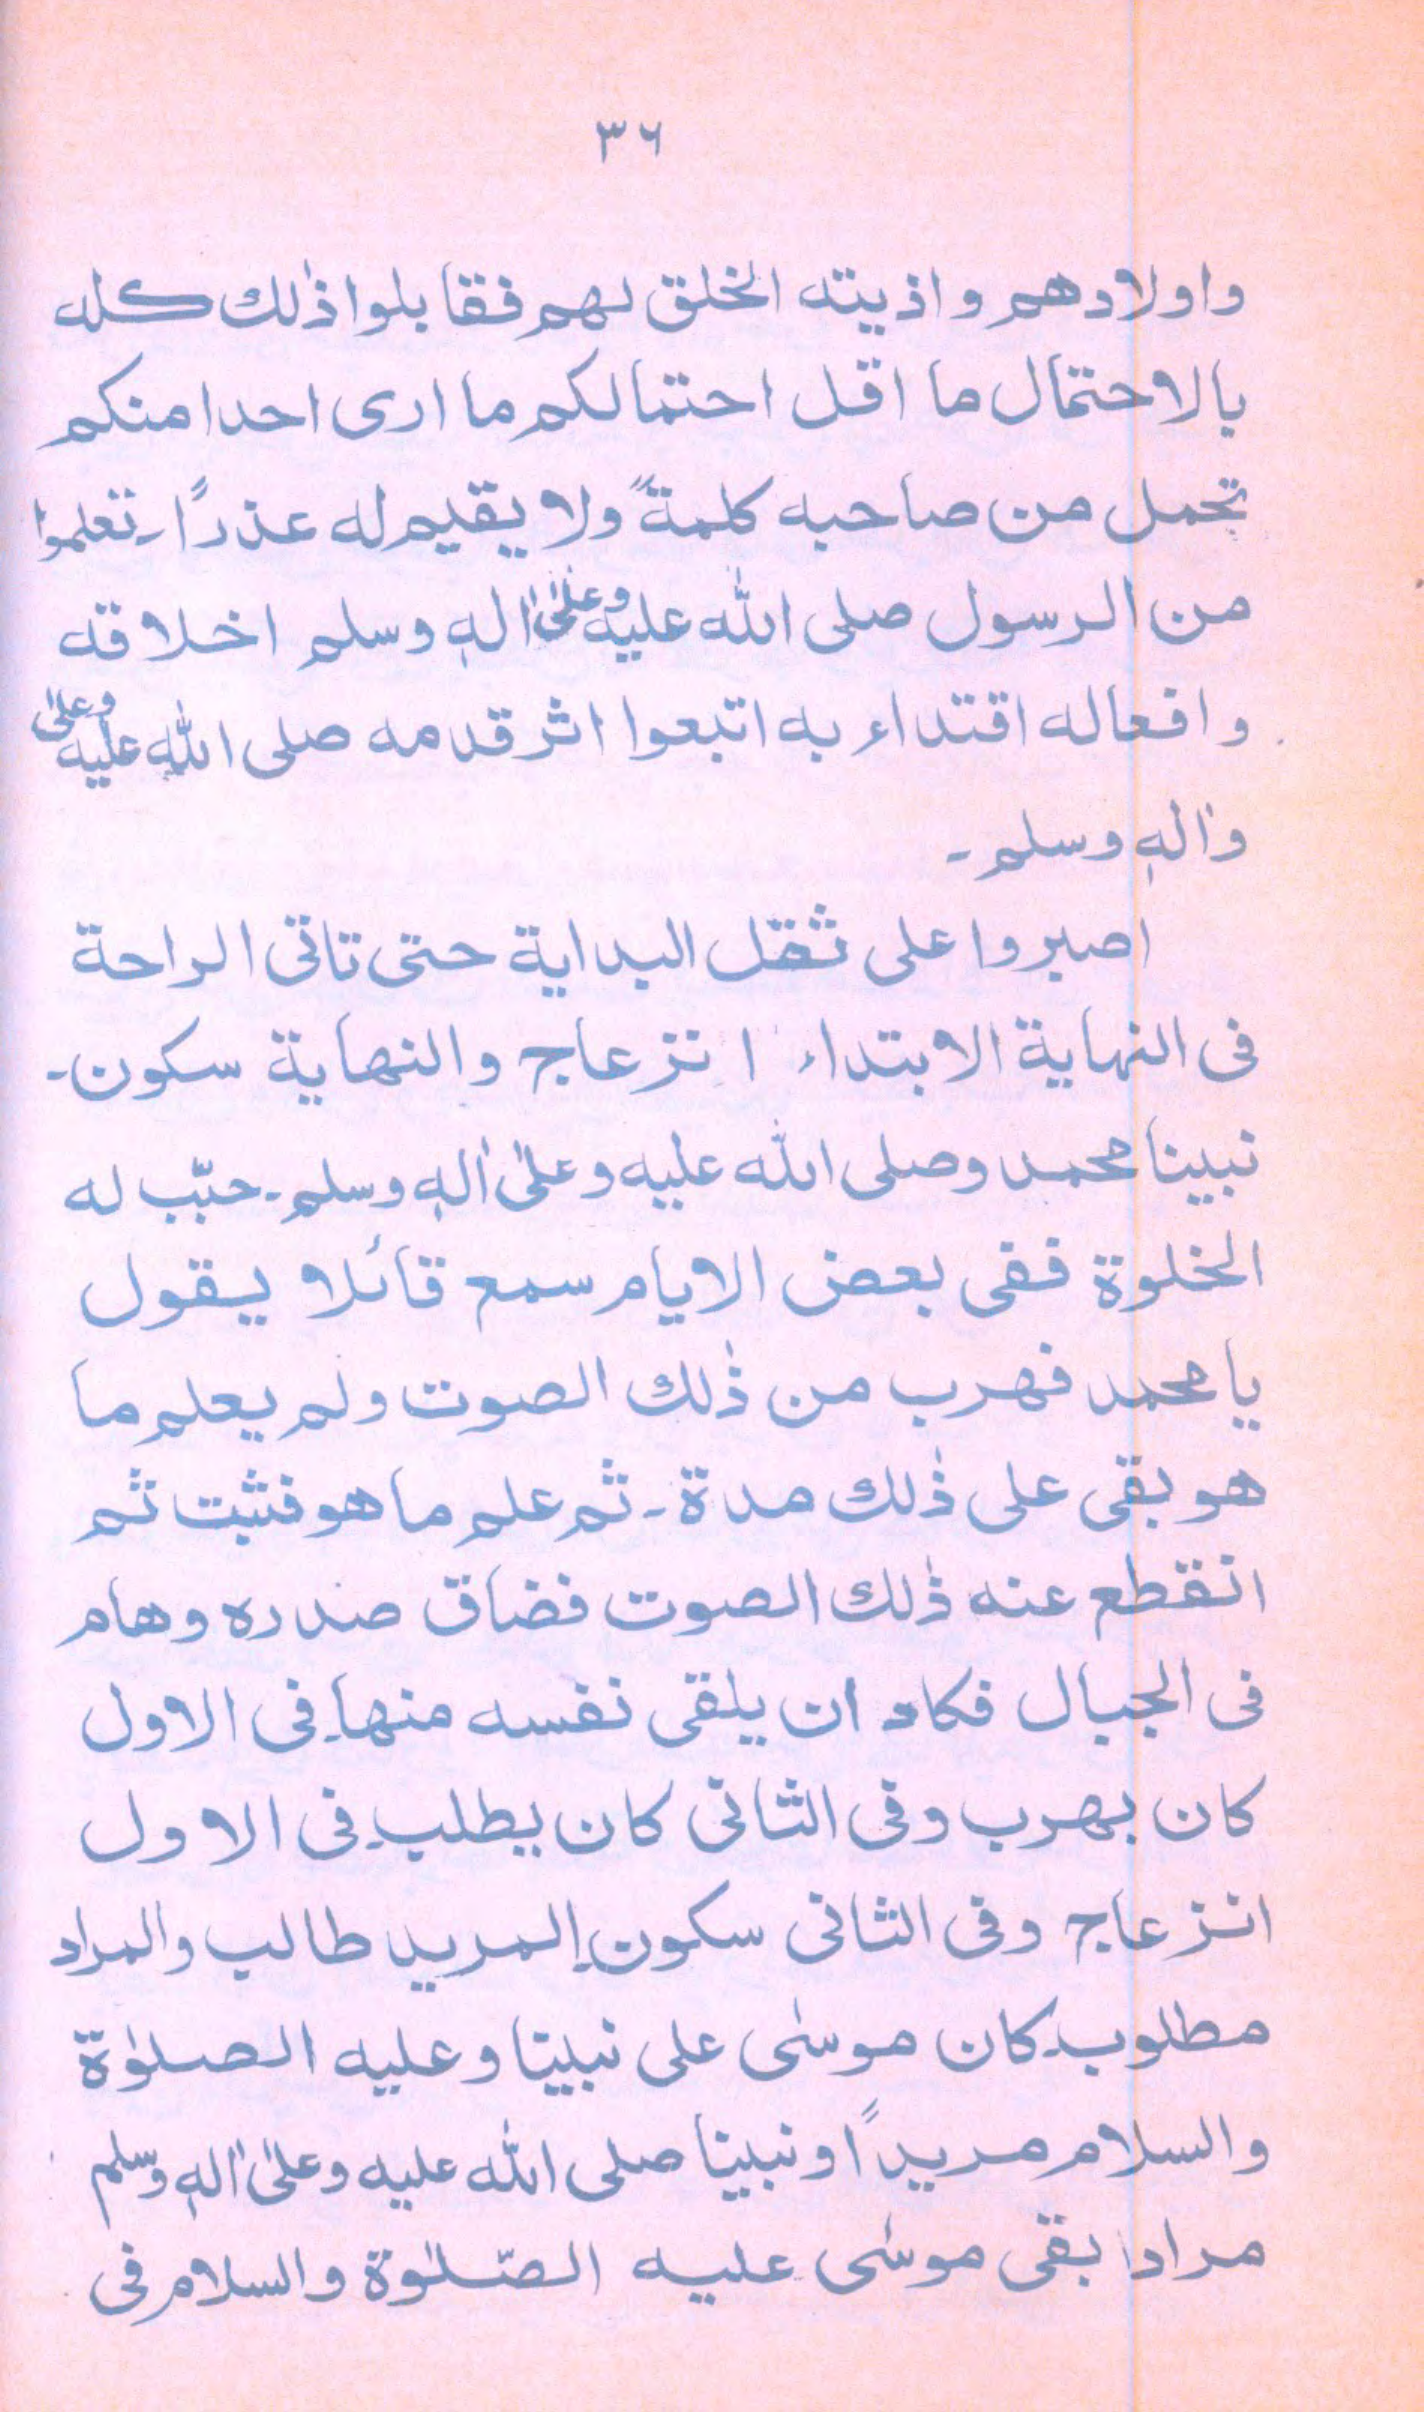 ٣٦
واولادهم واذيته الخلق لهم فقابلوا ذٰلك كله
بالاحتمال ما اقل احتمالكم ما ارى احدا منكم
تحمل من صاحبه كلمةً ولا يقيم له عذرًا۔ تعلموا
من الرسول صلى اللّٰه عليه وعلىٰ اٰلهٖ وسلم اخلاقه
وافعاله اقتداء به اتبعوا اثر قدمه صلى اللّٰه عليه وعلىٰ
واٰلهٖ وسلم۔
اصبروا على ثقل البداية حتى تاتى الراحة
فى النهاية الابتداء انزعاج والنهاية سكون۔
نبينا محمد وصلى اللّٰه عليه وعلىٰ اٰلهٖ وسلم۔ حبّب له
الخلوة ففى بعض الايام سمع قائلا يقول
يا محمد فهرب من ذٰلك الصوت ولم يعلم ما
هو بقى على ذٰلك مدة۔ ثم علم ما هو فثبت ثم
انقطع عنه ذٰلك الصوت فضاق صدره وهام
فى الجبال فكاد ان يلقى نفسه منها۔ فى الاول
كان يهرب وفى الثانى كان يطلب۔ فى الاول
انزعاج وفى الثانى سكون۔ المريد طالب والمراد
مطلوب۔ كان موسٰى على نبينا وعليه الصلوٰة
والسلام مريدًا ونبينا صلى اللّٰه عليه وعلىٰ اٰلهٖ وسلم
مرادا بقى موسٰى عليه الصّلوٰة والسلام فى